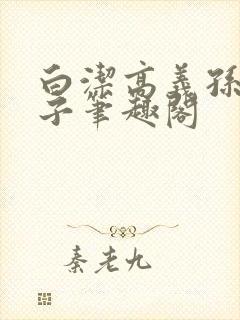 白潔高義孫
子筆趣閣
秦老九